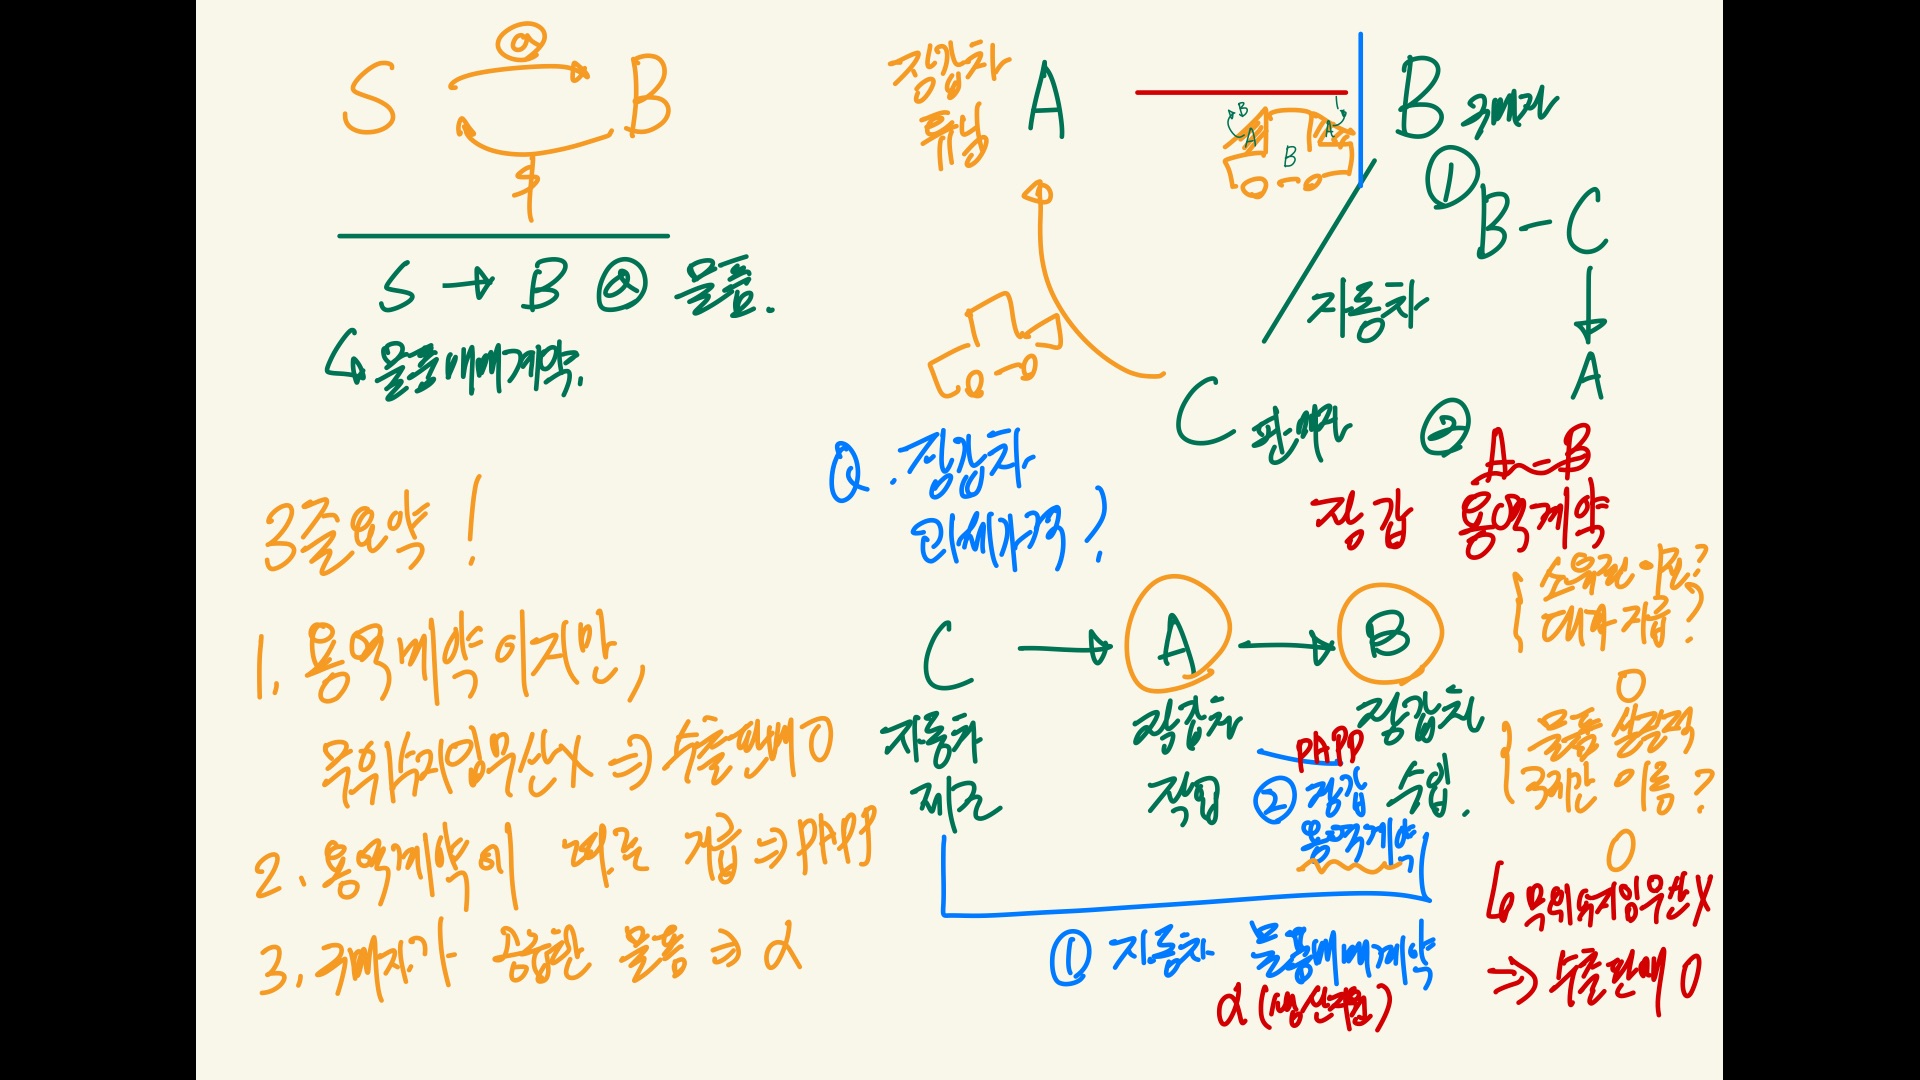 S ⓐ B
₩
S → B ⓐ 물품.
↳ 물품매매계약.
3줄요약!
1. 용역계약이지만,
무억수지임무산X ⇒ 수출판매 O
2. 용역계약이 따른 거름 ⇒ PAPP
3. 구매자가 공급한 물품 ⇒ α
장갑차
튜닝
A
B
A
B
A
B 구매자
①
B - C
↓
A
자동차
C 판매자
②
A - B
장갑 용역계약
Q. 장갑차
과세가격?
소유권 이전?
대가 지급?
O
물품 실질적
O
C → A → B
자동차
제조
장갑차
작업
장갑차
수입.
PAPP
② 장갑
용역계약
① 자동차 물품매매계약
α (생산지원)
⇒ 수출판매 O